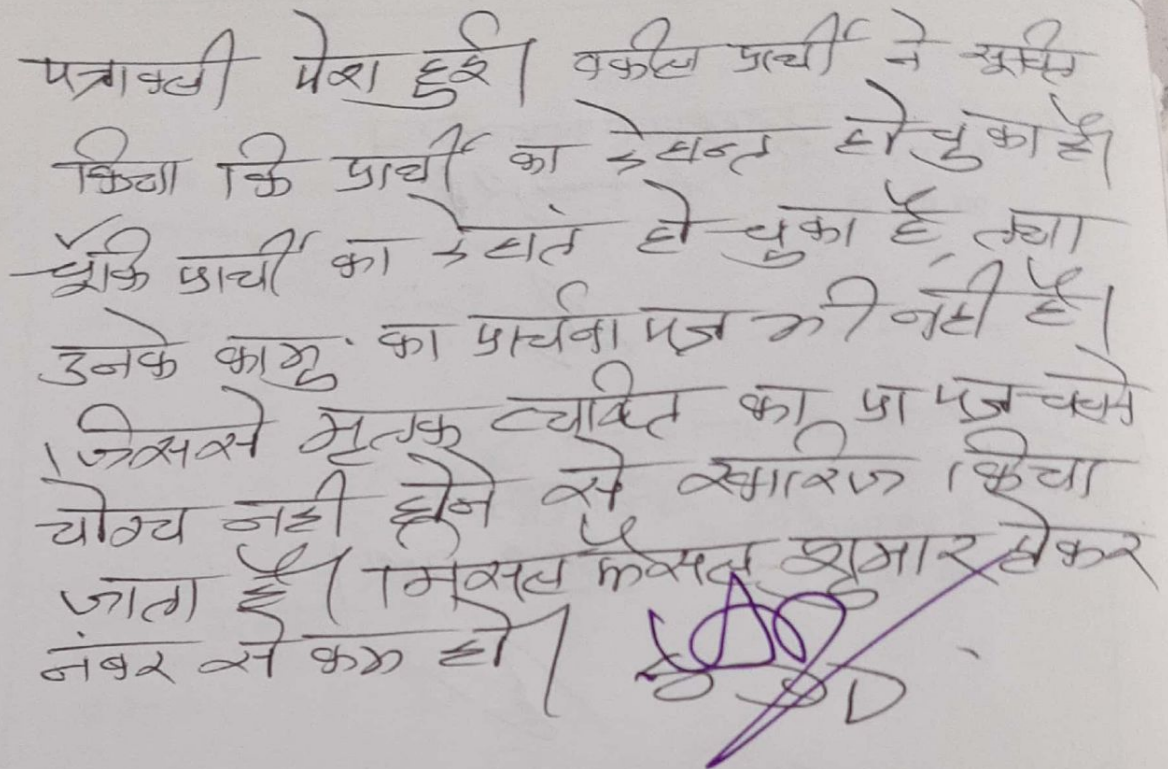 पत्रावली पेश हुई। वकील प्रार्थी ने सूचित
किया कि प्रार्थी का देहान्त हो चुका है।
चूँकि प्रार्थी का देहांत हो चुका है, तथा
उनके का.मु. का प्रार्थना पत्र भी नहीं है।
जिससे मृतक व्यक्ति का प्रा पत्र चलने
योग्य नही होने से खारिज किया
जाता है। मिसल फैसल शुमार होकर
नंबर से कम हो।